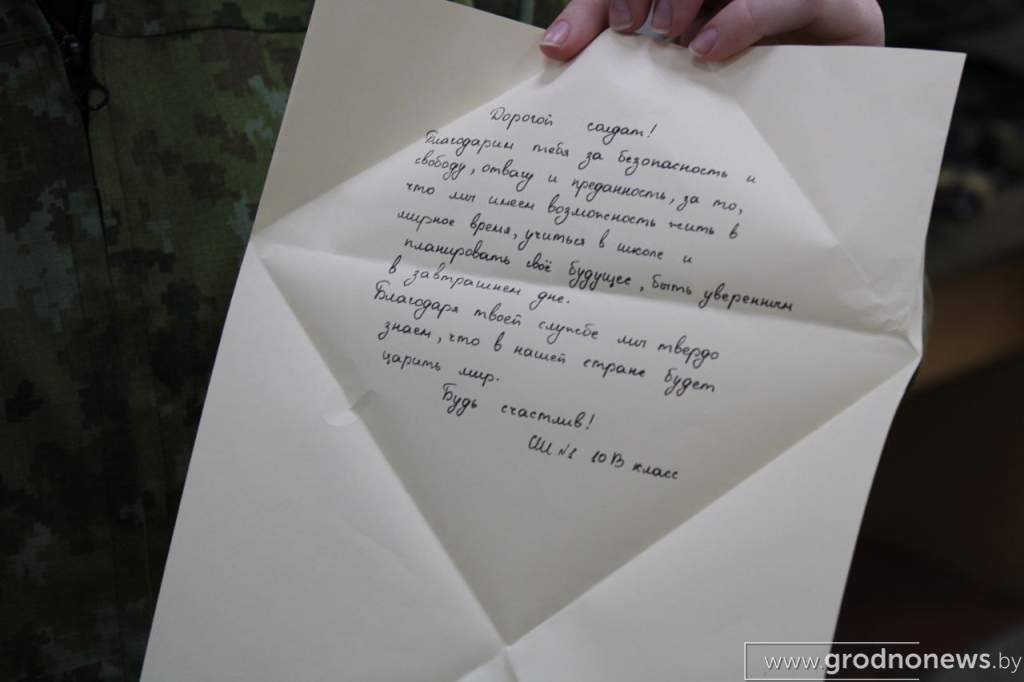 Дорогой солдат!
Благодарим тебя за безопасность и
свободу, отвагу и преданность, за то,
что мы имеем возможность жить в
мирное время, учиться в школе и
планировать своё будущее, быть уверенным
в завтрашнем дне.
Благодаря твоей службе мы твердо
знаем, что в нашей стране будет
царить мир.
Будь счастлив!
СШ №1 10 В класс
www.grodnonews.by